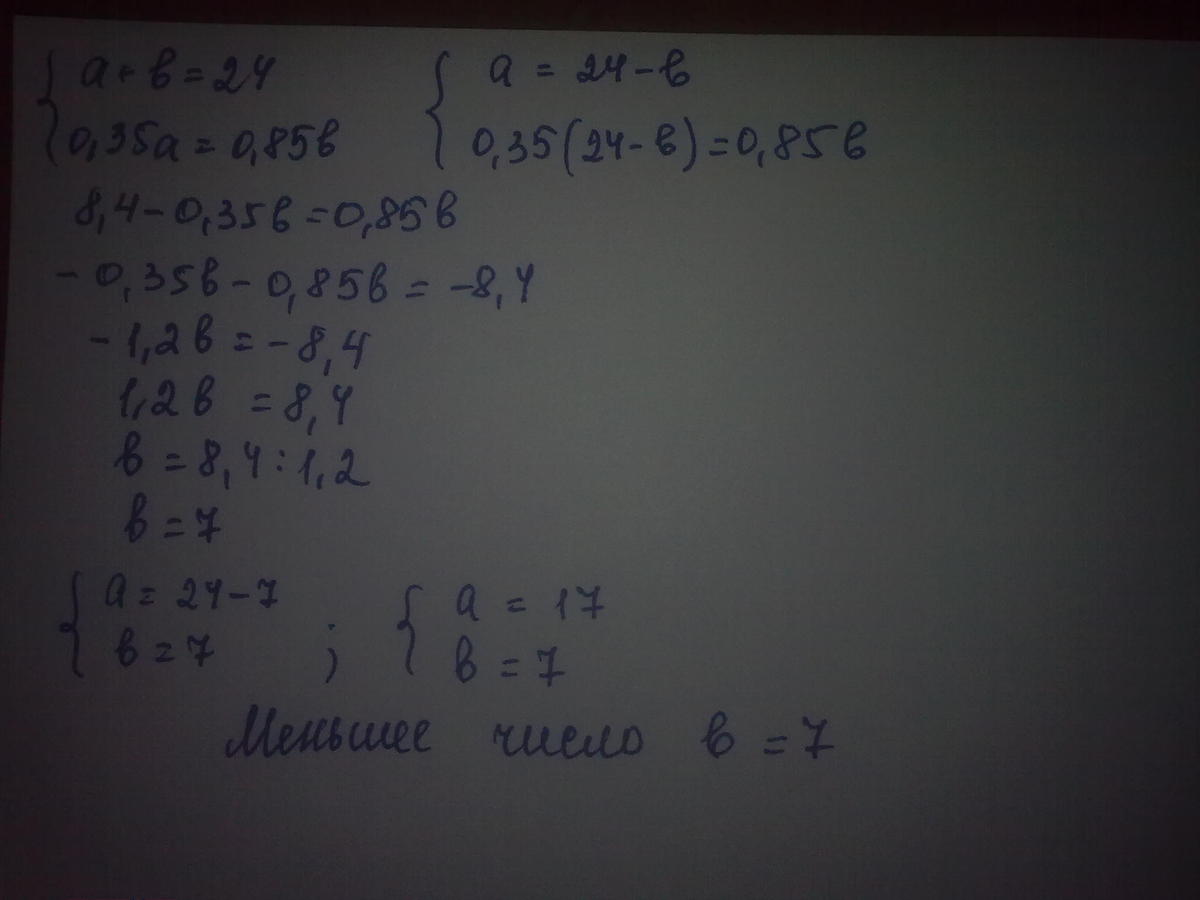 { а + в = 24 { а = 24 - в
0,35а = 0,85в 0,35(24 - в) = 0,85в
8,4 - 0,35в = 0,85в
- 0,35в - 0,85в = -8,4
- 1,2в = - 8,4
1,2в = 8,4
в = 8,4 : 1,2
в = 7
{ а = 24 - 7 ; { а = 17
в = 7 в = 7
Меньшее число в = 7